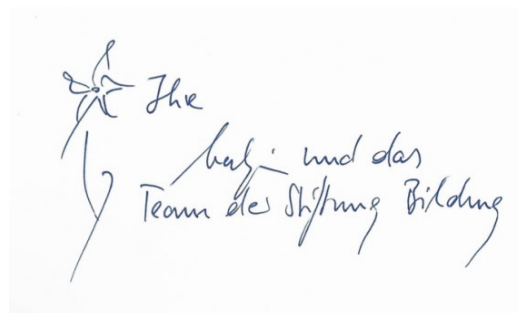 Ihre
und das
Team der Stiftung Bildung